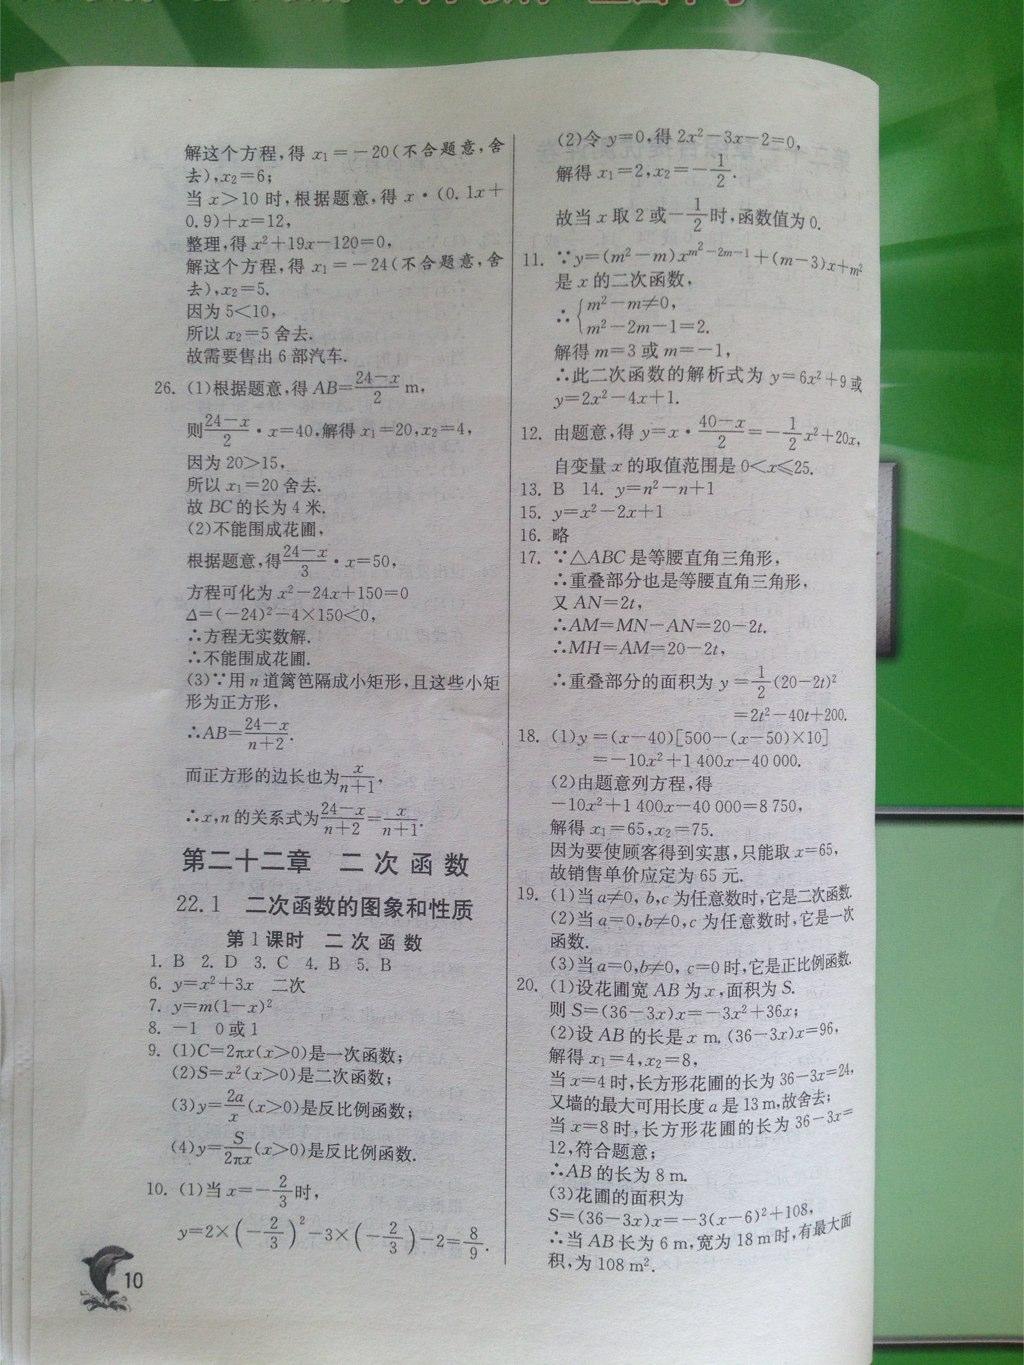 解这个方程,得 x₁=-20(不合题意,舍
去),x₂=6;
当 x>10 时,根据题意,得 x·(0.1x+
0.9)+x=12,
整理,得 x²+19x-120=0,
解这个方程,得 x₁=-24(不合题意,舍
去),x₂=5.
因为 5<10,
所以 x₂=5 舍去.
故需要售出 6 部汽车.
26. (1)根据题意,得 AB=(24-x)/2 m,
则(24-x)/2·x=40,解得 x₁=20,x₂=4,
因为 20>15,
所以 x₁=20 舍去.
故 BC 的长为 4 米.
(2)不能围成花圃,
根据题意,得(24-x)/3·x=50,
方程可化为 x²-24x+150=0
Δ=(-24)²-4×150<0,
∴方程无实数解.
∴不能围成花圃.
(3)∵用 n 道篱笆隔成小矩形,且这些小矩
形为正方形,
∴AB=(24-x)/(n+2).
而正方形的边长也为x/(n+1),
∴x,n 的关系式为(24-x)/(n+2)=x/(n+1).
第二十二章 二次函数
22.1 二次函数的图象和性质
第1课时 二次函数
1. B 2. D 3. C 4. B 5. B
6. y=x²+3x 二次
7. y=m(1-x)²
8. -1 0 或 1
9. (1)C=2πx(x>0)是一次函数;
(2)S=x²(x>0)是二次函数;
(3)y=2a/x(x>0)是反比例函数;
(4)y=S/(2πx)(x>0)是反比例函数.
10. (1)当 x=-2/3时,
y=2×(-2/3)²-3×(-2/3)-2=8/9.
10
(2)令 y=0,得 2x²-3x-2=0,
解得 x₁=2,x₂=-1/2.
故当 x 取 2 或-1/2时,函数值为 0.
11. ∵y=(m²-m)x^(m²-2m-1)+(m-3)x+m²
是 x 的二次函数,
∴{m²-m≠0,
m²-2m-1=2.
解得 m=3 或 m=-1,
∴此二次函数的解析式为 y=6x²+9 或
y=2x²-4x+1.
12. 由题意,得 y=x·(40-x)/2=-1/2x²+20x,
自变量 x 的取值范围是 0<x≤25.
13. B 14. y=n²-n+1
15. y=x²-2x+1
16. 略
17. ∵△ABC 是等腰直角三角形,
∴重叠部分也是等腰直角三角形,
又 AN=2t,
∴AM=MN-AN=20-2t.
∴MH=AM=20-2t,
∴重叠部分的面积为 y=1/2(20-2t)²
=2t²-40t+200.
18. (1)y=(x-40)[500-(x-50)×10]
=-10x²+1 400x-40 000.
(2)由题意列方程,得
-10x²+1 400x-40 000=8 750,
解得 x₁=65,x₂=75.
因为要使顾客得到实惠,只能取 x=65,
故销售单价应定为 65 元.
19. (1)当 a≠0, b,c 为任意数时,它是二次函数.
(2)当 a=0,b≠0,c 为任意数时,它是一次
函数.
(3)当 a=0,b≠0, c=0 时,它是正比例函数.
20. (1)设花圃宽 AB 为 x,面积为 S.
则 S=(36-3x)x=-3x²+36x;
(2)设 AB 的长是 x m. (36-3x)x=96,
解得 x₁=4,x₂=8,
当 x=4 时,长方形花圃的长为 36-3x=24,
又墙的最大可用长度 a 是 13 m,故舍去;
当 x=8 时,长方形花圃的长为 36-3x=
12,符合题意;
∴AB 的长为 8 m.
(3)花圃的面积为
S=(36-3x)x=-3(x-6)²+108,
∴当 AB 长为 6 m,宽为 18 m 时,有最大面
积,为 108 m².